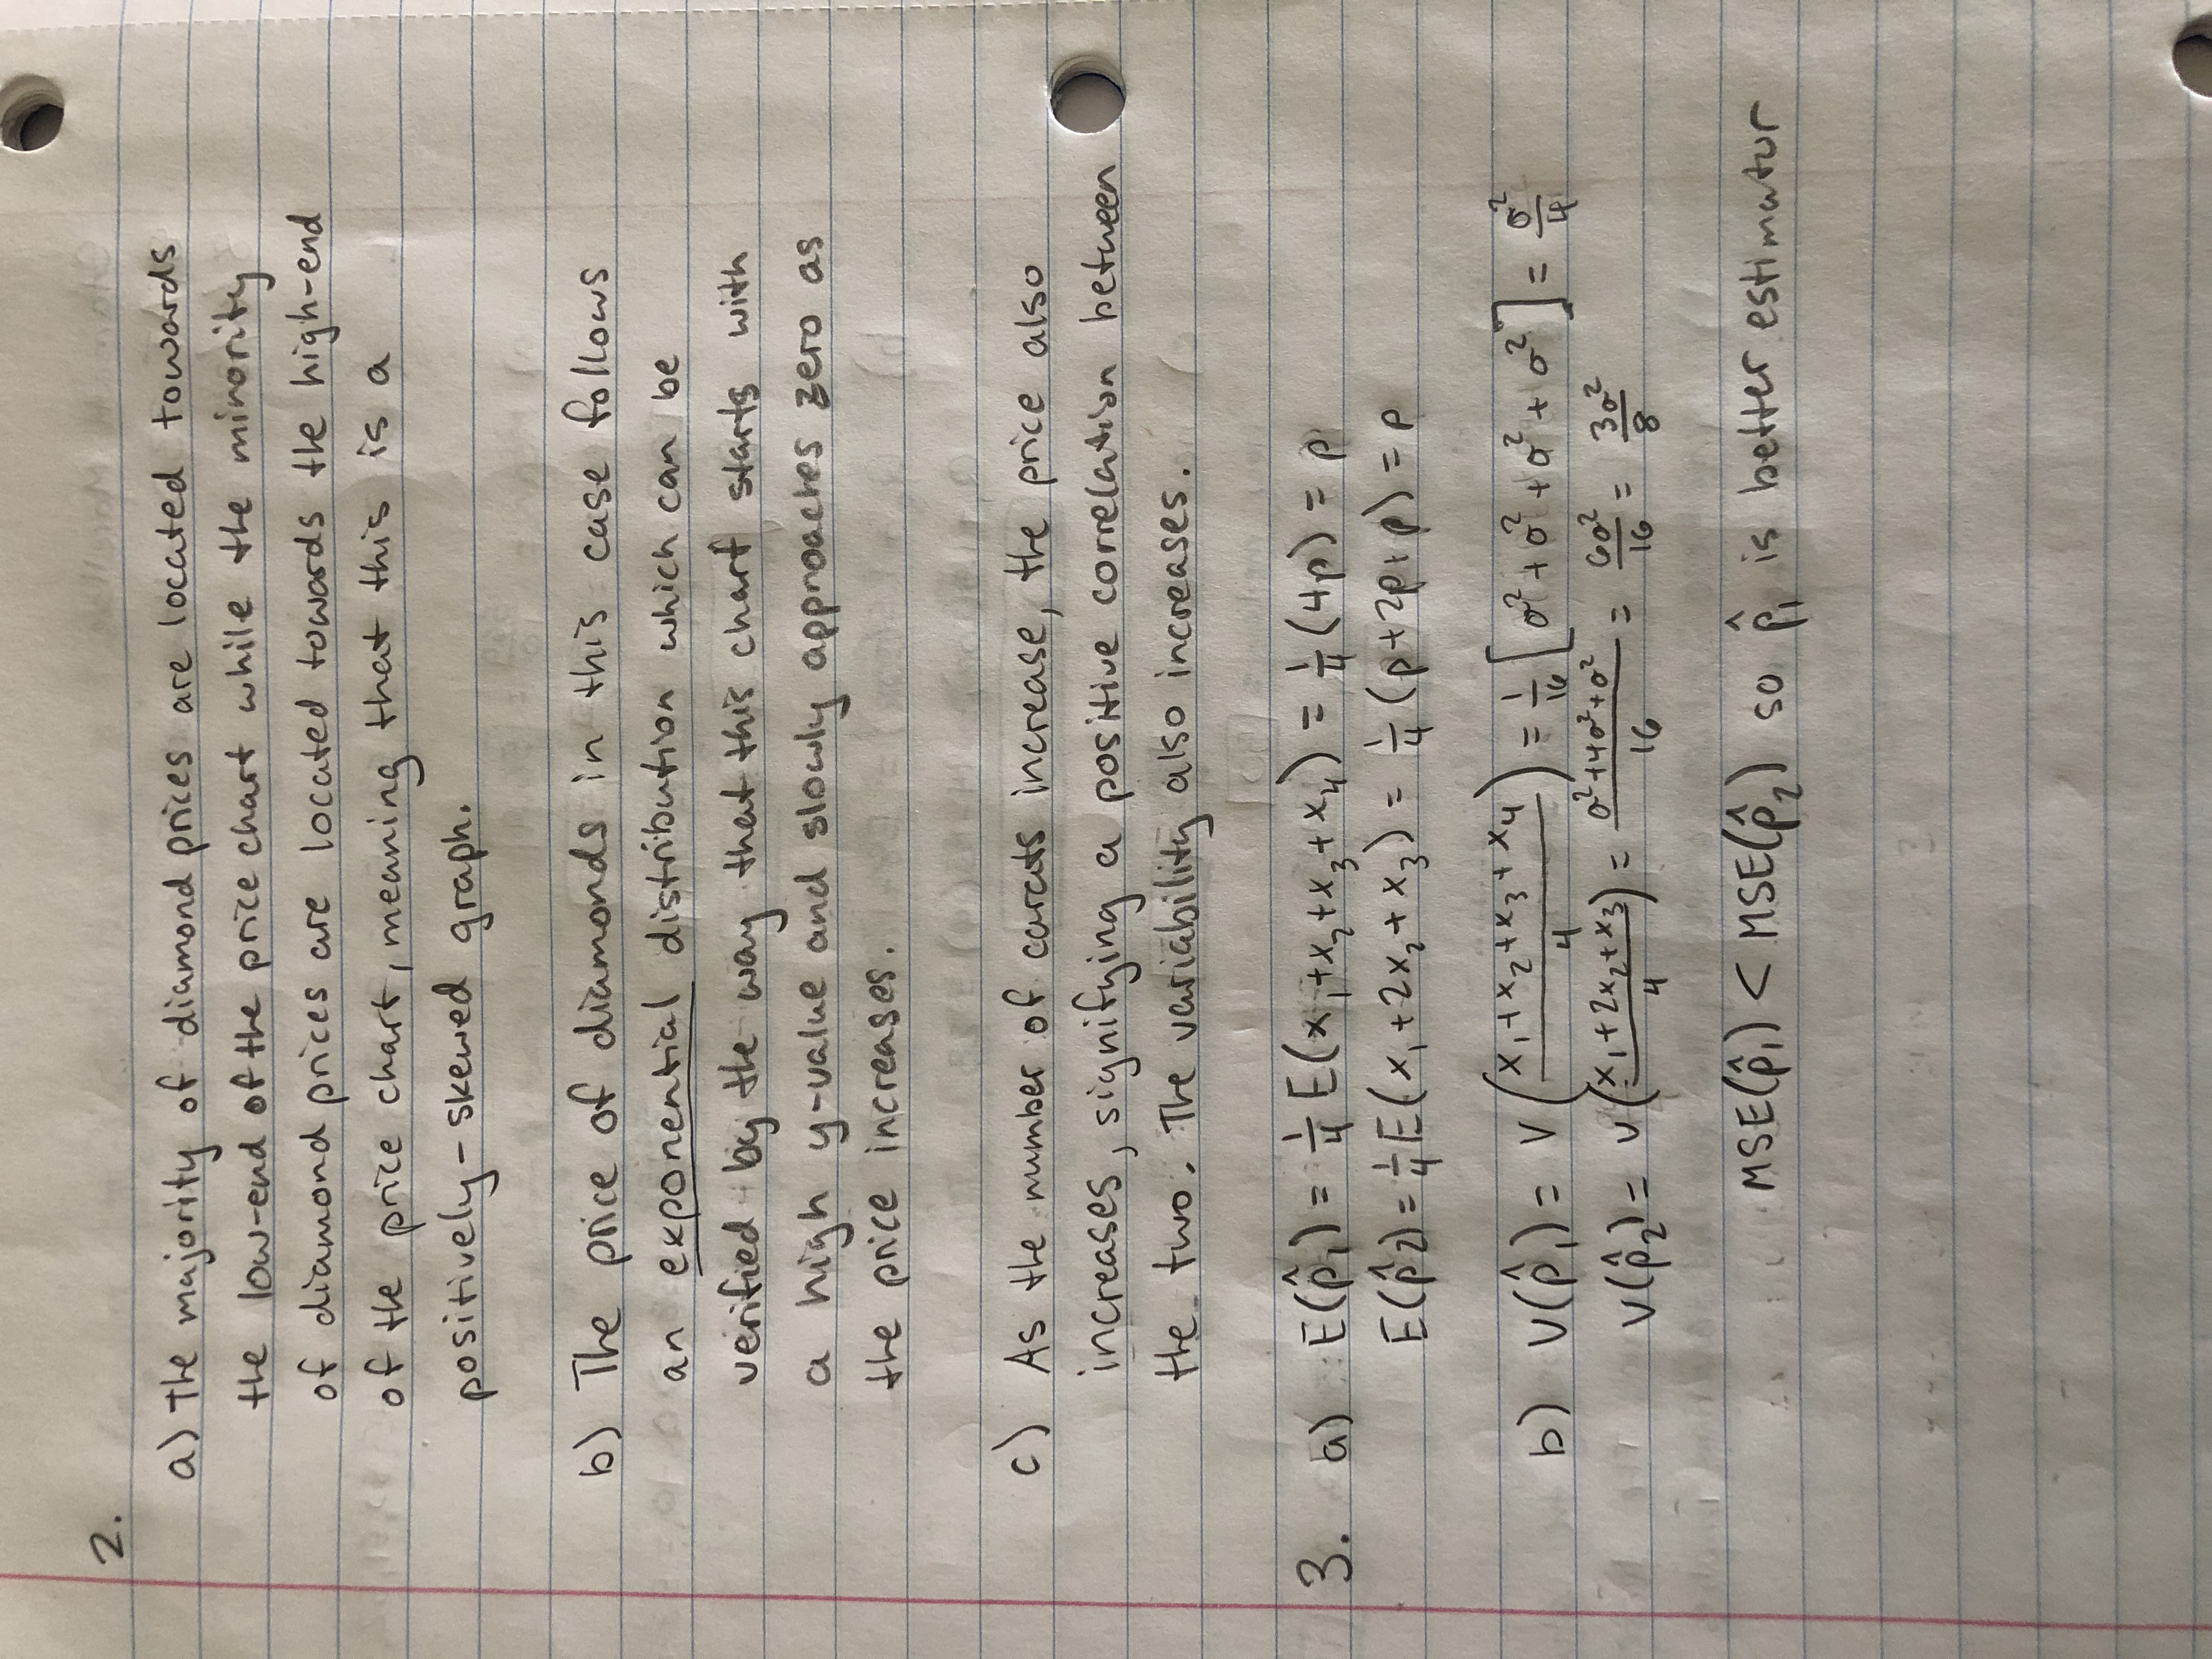 2.
a) The majority of diamond prices are located towards
the low-end of the price chart while the minority
of diamond prices are located towards the high-end
of the price chart, meaning that this is a
positively-skewed graph.
b) The price of diamonds in this case follows
an exponential distribution which can be
verified by the way that this chart starts with
a high y-value and slowly approaches zero as
the price increases.
c) As the number of carats increase, the price also
increases, signifying a positive correlation between
the two. The variability also increases.
3. a) E(p̂₁) = 1/4 E(x₁+x₂+x₃+x₄) = 1/4 (4p) = p
E(p̂2) = 1/4 E(x₁+2x₂+x₃) = 1/4 (p+2p+p) = p
b) V(p̂₁) = V((x₁+x₂+x₃+x₄)/4) = 1/16 [σ²+σ²+σ²+σ²] = σ²/4
V(p̂₂) = V((x₁+2x₂+x₃)/4) = (σ²+4σ²+σ²)/16 = 6σ²/16 = 3σ²/8
MSE(p̂₁) < MSE(p̂₂) so p̂₁ is better estimator